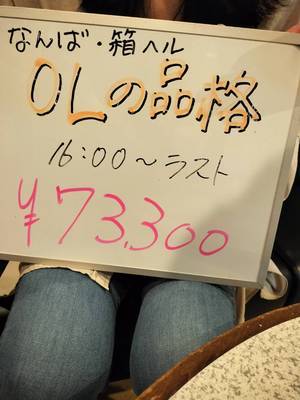 なんば・箱ヘル
OLの品格
16:00～ラスト
¥73,300